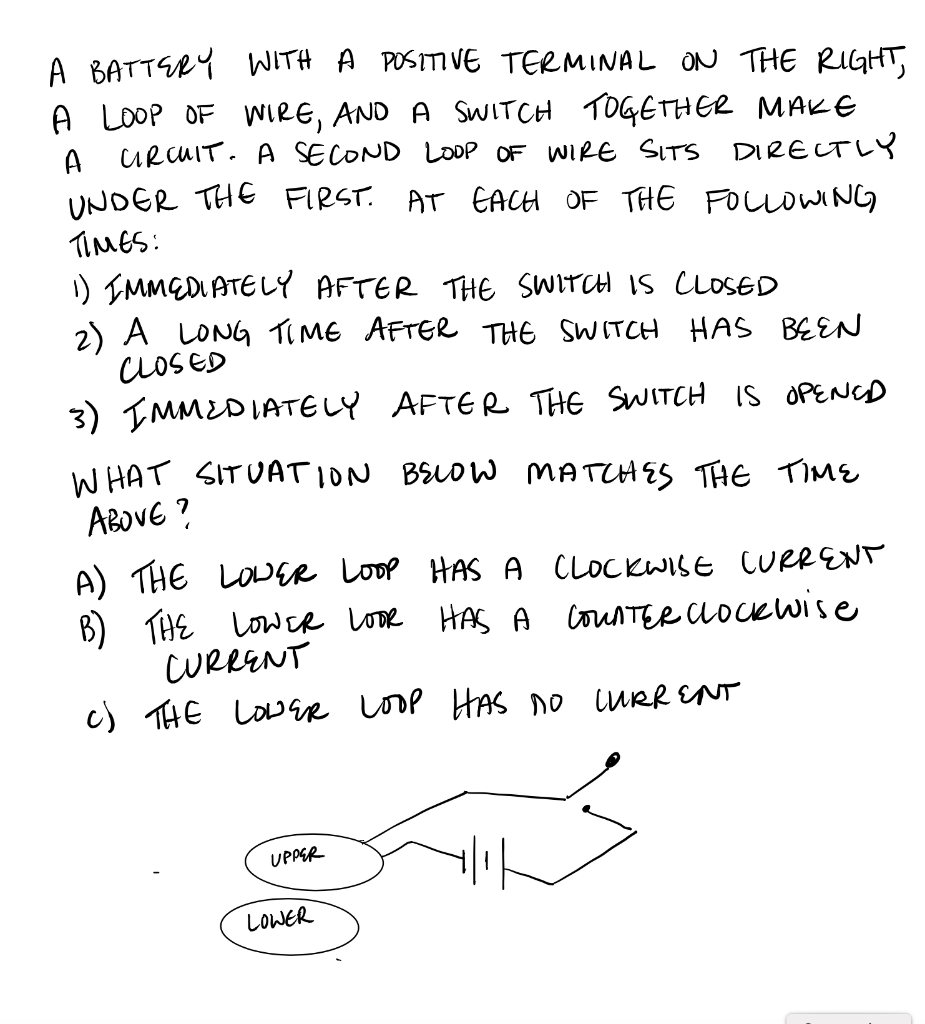 A BATTERY WITH A POSITIVE TERMINAL ON THE RIGHT,
A LOOP OF WIRE, AND A SWITCH TOGETHER MAKE
A CIRCUIT. A SECOND LOOP OF WIRE SITS DIRECTLY
UNDER THE FIRST. AT EACH OF THE FOLLOWING
TIMES:
1) IMMEDIATELY AFTER THE SWITCH IS CLOSED
2) A LONG TIME AFTER THE SWITCH HAS BEEN
CLOSED
3) IMMEDIATELY AFTER THE SWITCH IS OPENED
WHAT SITUATION BELOW MATCHES THE TIME
ABOVE?
A) THE LOWER LOOP HAS A CLOCKWISE CURRENT
B) THE LOWER LOOP HAS A COUNTERCLOCKWise
CURRENT
C) THE LOWER LOOP HAS NO CURRENT
UPPER
LOWER